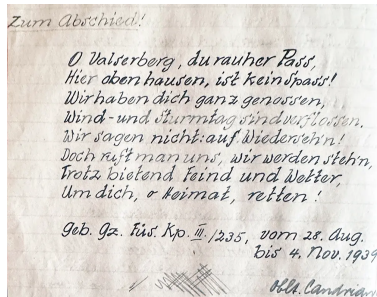 Zum Abschied!
O Valserberg, du rauher Pass,
Hier oben hausen, ist kein Spass!
Wir haben dich ganz genossen,
Wind- und Sturmtag sind verflossen.
Wir sagen nicht: auf Wiederseh'n!
Doch ruft man uns, wir werden steh'n,
Trotz bietend Feind und Wetter,
Um dich, o Heimat, retten!
geb. Gz. Füs. Kp. III./235, vom 28. Aug.
bis 4. Nov. 1939
Oblt. Candrian